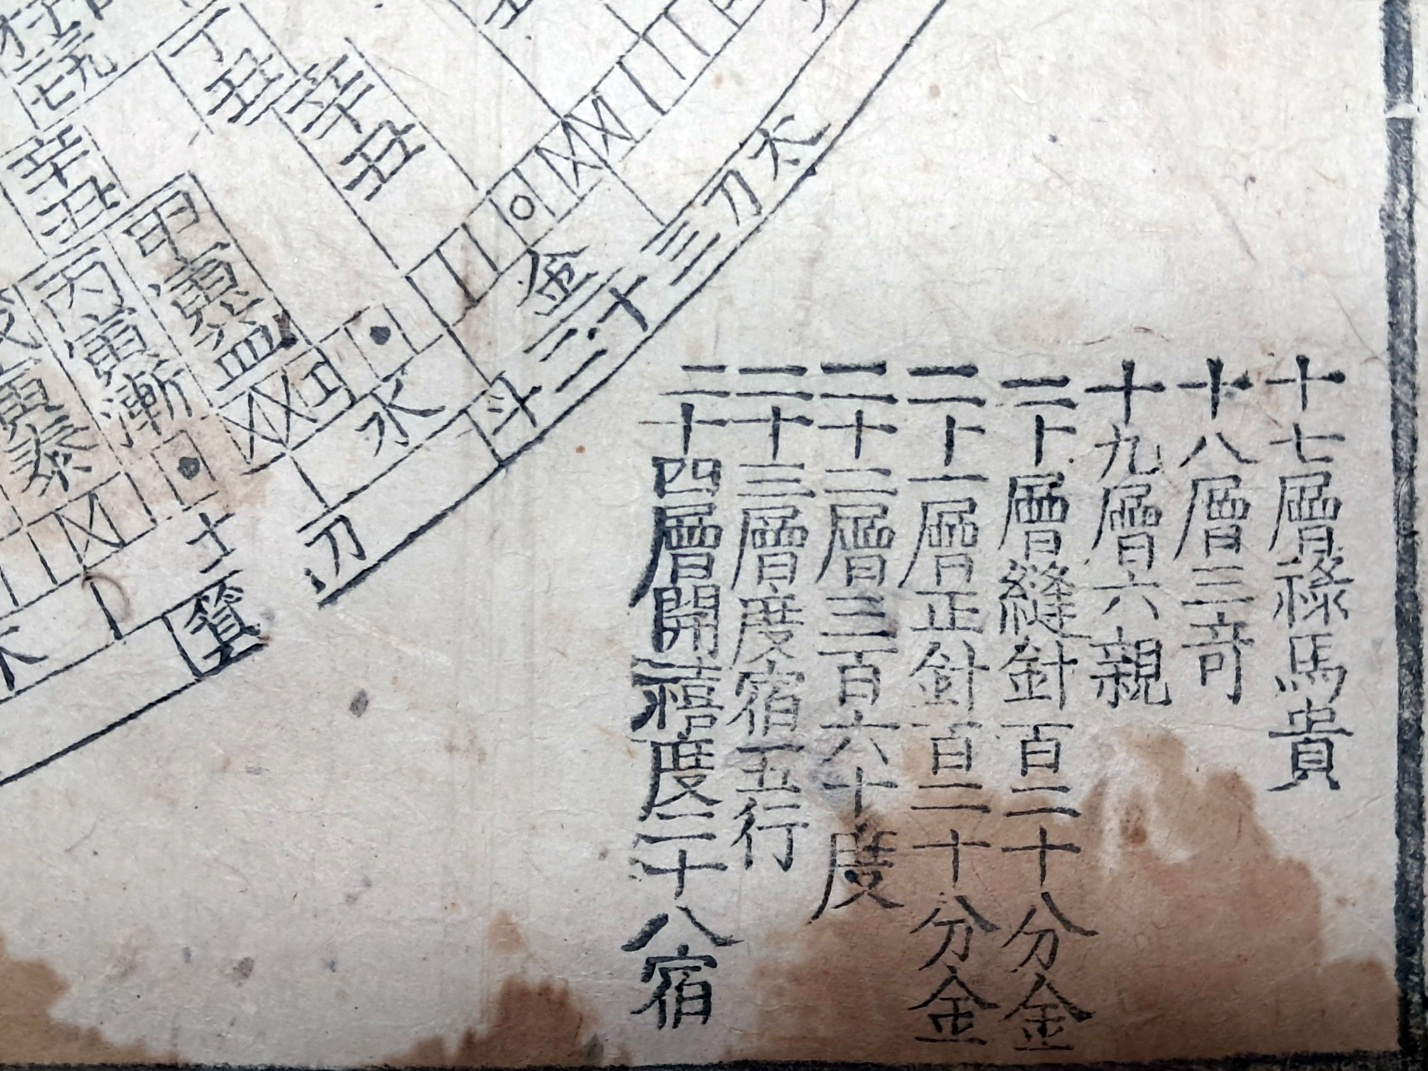 十七層祿馬貴
十八層三奇
十九層六親
二十層縫針百二十八分金
二十一層正針百二十分金
二十二層三百六十度
二十三層度宿五行
二十四層開禧度二十八宿
丁丑
辛丑
辛丑
甲寅益
丙寅漸
寅泰
金
水
土
太
刀三十二
斗
刀
箕